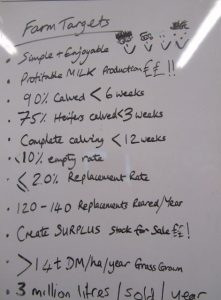 Farm Targets
• Simple + Enjoyable
• Profitable MILK Production ££!!
• 90% Calved < 6 weeks
• 75% Heifers calved < 3 weeks
• Complete calving < 12 weeks
• <10% empty rate
• ≤ 20% Replacement Rate
• 120-140 Replacements Reared/Year
• Create SURPLUS Stock for Sale ££!
• >14t DM/ha/year Grass Grown
• 3 million litres / sold / year